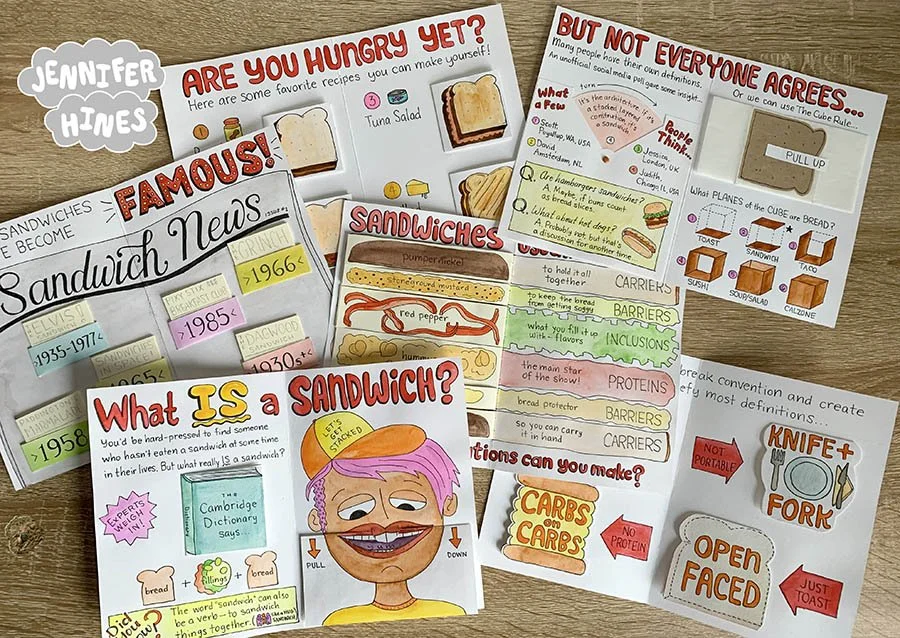 JENNIFER
HINES
ARE YOU HUNGRY YET?
Here are some favorite recipes you can make yourself!
1
3
Tuna Salad
4
BUT NOT EVERYONE AGREES...
Many people have their own definitions.
An unofficial social media poll gave some insight...
Or we can use The Cube Rule...
turn
What
a Few
People
Think...
It's the architecture. If it's
a stacked, layered
combination, it's
a sandwich.
4
1 Scott,
Puyallup, WA, USA
2 David,
Amsterdam, NL
3 Jessica,
London, UK
4 Judith,
Q. Are hamburgers sandwiches?
A. Maybe, if buns count
as bread slices.
Q. What about hot dogs?
A. Probably not, but that's
a discussion for another time...
PULL UP
What PLANES of the CUBE are BREAD?
TOAST
SANDWICH
TACO
SUSHI
SOUP/SALAD
CALZONE
SANDWICHES
E BECOME
FAMOUS!
Sandwich News
ISSUE #1
ELVIS!
1935-1977
SANDWICHES
IN SPACE!
1965
1985
>1966<
DAGWOOD
SANDWICH
1930s
1958
SANDWICHES
pumpernickel
stoneground mustard
red pepper
hummus
to hold it all
together
CARRIERS
to keep the bread
from getting soggy
BARRIERS
what you fill it up
with - flavors
INCLUSIONS
the main star
of the show!
PROTEINS
bread protector
BARRIERS
so you can carry
it in hand
CARRIERS
tions can you make?
What IS a SANDWICH?
You'd be hard-pressed to find someone
who hasn't eaten a sandwich at some time
in their lives. But what really IS a sandwich?
EXPERTS
WEIGH
IN!
Dictionary
THE
Cambridge
Dictionary
says...
bread + fillings + bread
Did
You
Know?
The word "sandwich" can also
be a verb — to sandwich
things together.
LET'S
GET
STACKED
PULL
DOWN
break convention and create
efy most definitions...
NOT
PORTABLE
KNIFE +
FORK
CARBS
on
CARBS
NO
PROTEIN
OPEN
FACED
JUST
TOAST